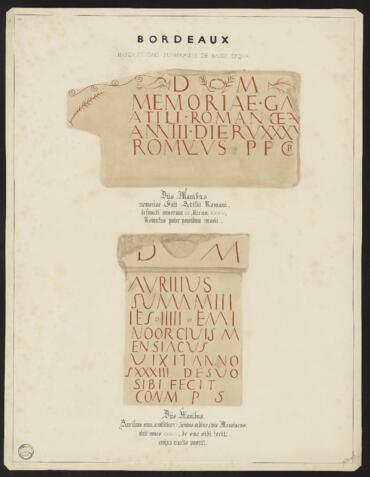 BORDEAUX
INSCRIPTIONS FUNERAIRES DE BASSE EPOQUE
D M
MEMORIAE · GA
ATILI · ROMAN
ANVIII · DIERVXXXV
ROMVLVS · P P C
Diis Manibus
memoriae Gaii Atilii Romani,
defuncti annorum dierum
Romulus pater ponendum curavit.
D M
AVRILIUS
SUMAMIII
IES IIIII EMI
NOORCIUIS M
ENSIACUS
VIXIT ANNO
SXXXIII DESVO
SIBI FECIT
CONM P S
Diis Manibus.
vixit annos de suo sibi fecit;